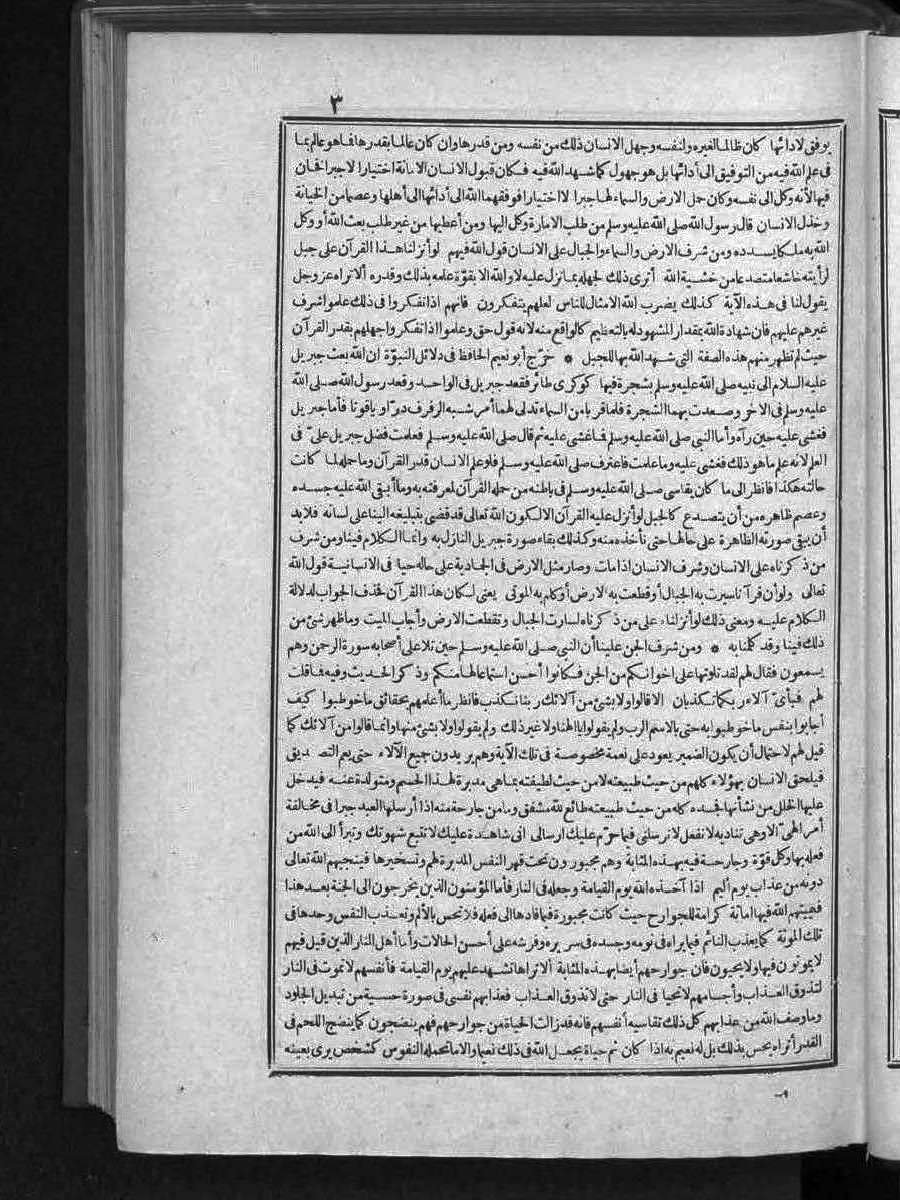 ٣
يوفق لادائها كان ظالما لغيره ولنفسه وجهل الانسان ذلك من نفسه ومن قدرها وان كان عالما بقدرها فما هو عالم بما
فى علم الله فيه من التوفيق الى أدائها بل هو جهول كما شهد الله فيه فكان قبول الانسان الامانة اختيارا لا جبرا فخان
فيها لأنه وكل الى نفسه وكان حمل الارض والسماء لها جبرا لا اختيارا فوفقهما الله الى أدائها الى أهلها وعصما من الخيانة
وخذل الانسان قال رسول الله صلى الله عليه وسلم من طلب الامارة وكل اليها ومن أعطيها من غير طلب بعث الله أو وكل
الله به ملكا يسدده ومن شرف الارض والسماء والجبال على الانسان قول الله فيهم لو أنزلنا هذا القرآن على جبل
لرأيته خاشعا متصدعا من خشية الله أترى ذلك لجهله بما نزل عليه لا والله الا بقوة علمه بذلك وقدره ألا تراه عز وجل
يقول لنا فى هذه الآية كذلك يضرب الله الامثال للناس لعلهم يتفكرون فانهم اذا تفكروا فى ذلك علموا شرف
غيرهم عليهم فان شهادة الله بمقدار المشهود له بالتعظيم كالواقع منه لانه قول حق وعلموا اذا تفكروا جهلهم بقدر القرآن
حيث لم تظهر منهم هذه الصفة التى شهد الله بها للجبل * خرّج أبو نعيم الحافظ فى دلائل النبوّة ان الله بعث جبريل
عليه السلام الى نبيه صلى الله عليه وسلم بشجرة فيها كوكرى طائر فقعد جبريل فى الواحد وقعد رسول الله صلى الله
عليه وسلم فى الآخر وصعدت بهما الشجرة فلما قربا من السماء تدلى لهما أمر شبه الرفرف درّا وياقوتا فأما جبريل
فغشى عليه حين رآه وأما النبى صلى الله عليه وسلم فما غشى عليه ثم قال صلى الله عليه وسلم فعلمت فضل جبريل علىّ فى
العلم لانه علم ما هو ذلك فغشى عليه وما علمت فاعترف صلى الله عليه وسلم فلو علم الانسان قدر القرآن وما حمله لما كانت
حالته هكذا فانظر الى ما كان يقاسى صلى الله عليه وسلم فى باطنه من حمله القرآن لمعرفته به وما أبقى الله عليه جسده
وعصم ظاهره من أن يتصدع كالجبل لو أنزل عليه القرآن الا لكون الله تعالى قد قضى بتبليغه الينا على لسانه فلا بد
أن يبقى صورته الظاهرة على حالها حتى نأخذه منه وكذلك بقاء صورة جبريل النازل به وانما الكلام فينا ومن شرف
من ذكرناه على الانسان وشرف الانسان اذا مات وصار مثل الارض فى الجمادية على حاله حيا فى الانسانية قول الله
تعالى ولو أن قرآنا سيرت به الجبال أو قطعت به الارض أو كلم به الموتى يعنى لكان هذا القرآن فحذف الجواب لدلالة
الكلام عليه ومعنى ذلك لو أنزلناه على من ذكرناه لسارت الجبال وتقطعت الارض وأجاب الميت وما ظهر شئ من
ذلك فينا وقد كلمنا به * ومن شرف الجن علينا أن النبى صلى الله عليه وسلم حين تلا على أصحابه سورة الرحمن وهم
يسمعون فقال لهم لقد تلوتها على اخوانكم من الجن فكانوا أحسن استماعا لها منكم وذكر الحديث وفيه فما قلت
لهم فبأىّ آلاء ربكما تكذبان الا قالوا ولا بشئ من آلائك ربنا نكذب فانظر ما أعلمهم بحقائق ما خوطبوا كيف
أجابوا بنفس ما خوطبوا به حتى بالاسم الرب ولم يقولوا يا الهنا ولا غير ذلك ولم يقولوا ولا بشئ منها وانما قالوا من آلائك كما
قيل لهم لاحتمال أن يكون الضمير يعود على نعمة مخصوصة فى تلك الآية وهم يريدون جميع الآلاء حتى يعم التصديق
فيلحق الانسان بهؤلاء كلهم من حيث طبيعته لا من حيث لطيفته بما هى مدبرة لهذا الجسم ومتولدة عنه فيدخل
عليها الخلل من نشأتها فجسده كله من حيث طبيعته طائع لله مشفق وما من جارحة منه اذا أرسلها العبد جبرا فى مخالفة
أمر الهىّ الا وهى تناديه لا تفعل لا ترسلنى فيما حرّم عليك ارسالى انى شاهدة عليك لا تتبع شهوتك وتبرأ الى الله من
فعله بها وكل قوّة وجارحة فيه بهذه المثابة وهم مجبورون تحت قهر النفس المدبرة لهم وتسخيرها فينجيهم الله تعالى
دونه من عذاب يوم أليم اذا آخذه الله يوم القيامة وجعله فى النار فأما المؤمنون الذين يخرجون الى الجنة بعد هذا
فيميتهم الله فيها اماتة كرامة للجوارح حيث كانت مجبورة فيما قادها الى فعله فلا تحس بالألم وتعذب النفس وحدها فى
تلك الموتة كما يعذب النائم فيما يراه فى نومه وجسده فى سريره وفرشه على أحسن الحالات وأما أهل النار الذين قيل فيهم
لا يموتون فيها ولا يحيون فان جوارحهم أيضا بهذه المثابة ألا تراها تشهد عليهم يوم القيامة فأنفسهم لا تموت فى النار
لتذوق العذاب وأجسامهم لا تحيا فى النار حتى لا تذوق العذاب فعذابهم نفسى فى صورة حسية من تبديل الجلود
وما وصف الله من عذابهم كل ذلك تقاسيه أنفسهم فانه قد زالت الحياة من جوارحهم فهم ينضجون كما ينضج اللحم فى
القدر أتراه يحس بذلك بل له نعيم به اذا كان ثم حياة يجعل الله فى ذلك نعيما والا ما تحمله النفوس كشخص يرى بعينه